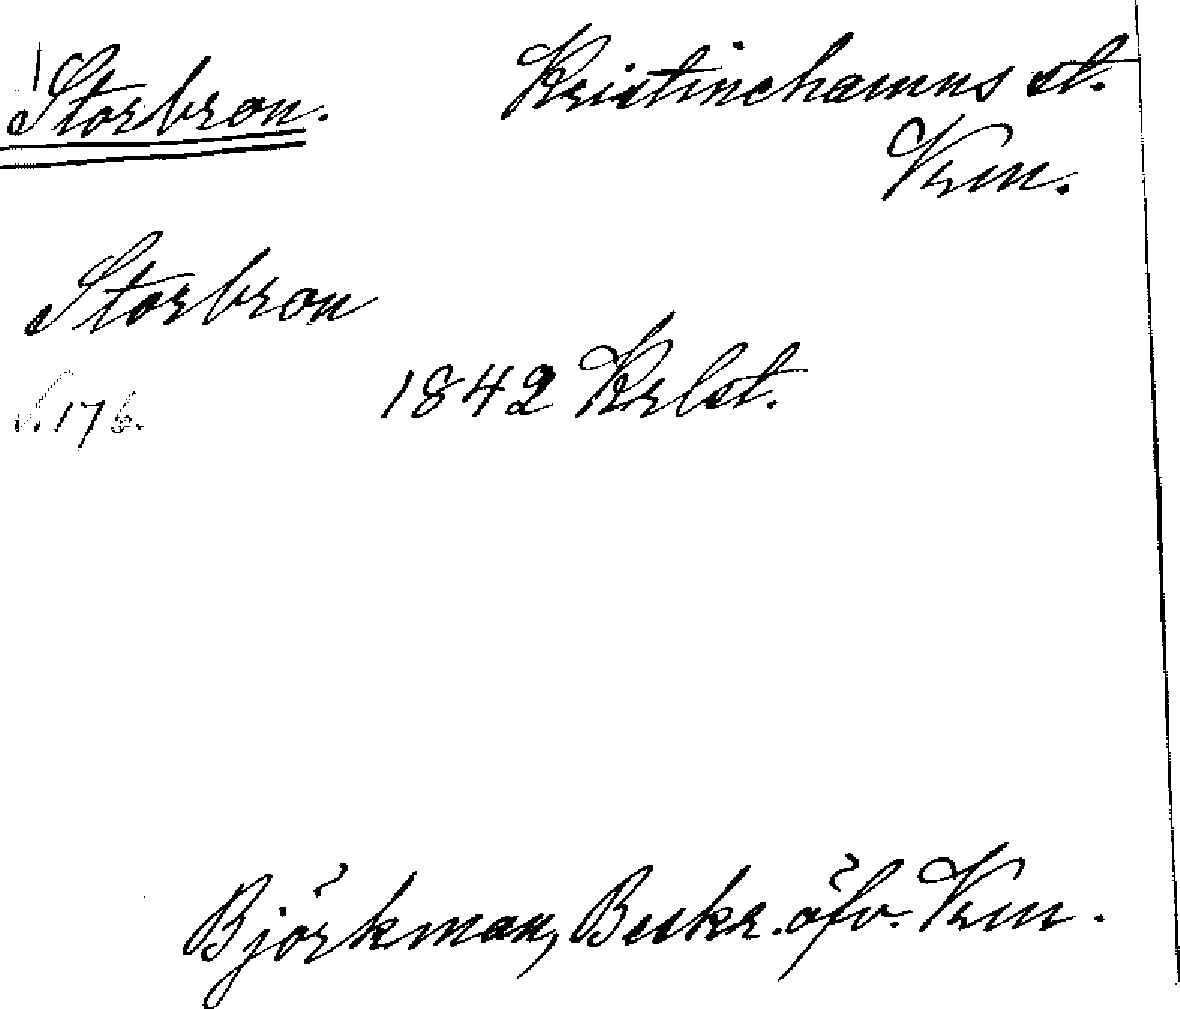 Storbron. Kristinehamns st.
Vrm.
Storbron
1842 Krlst.
S. 176.
Björkman, Beskr. öfv. Vrm.